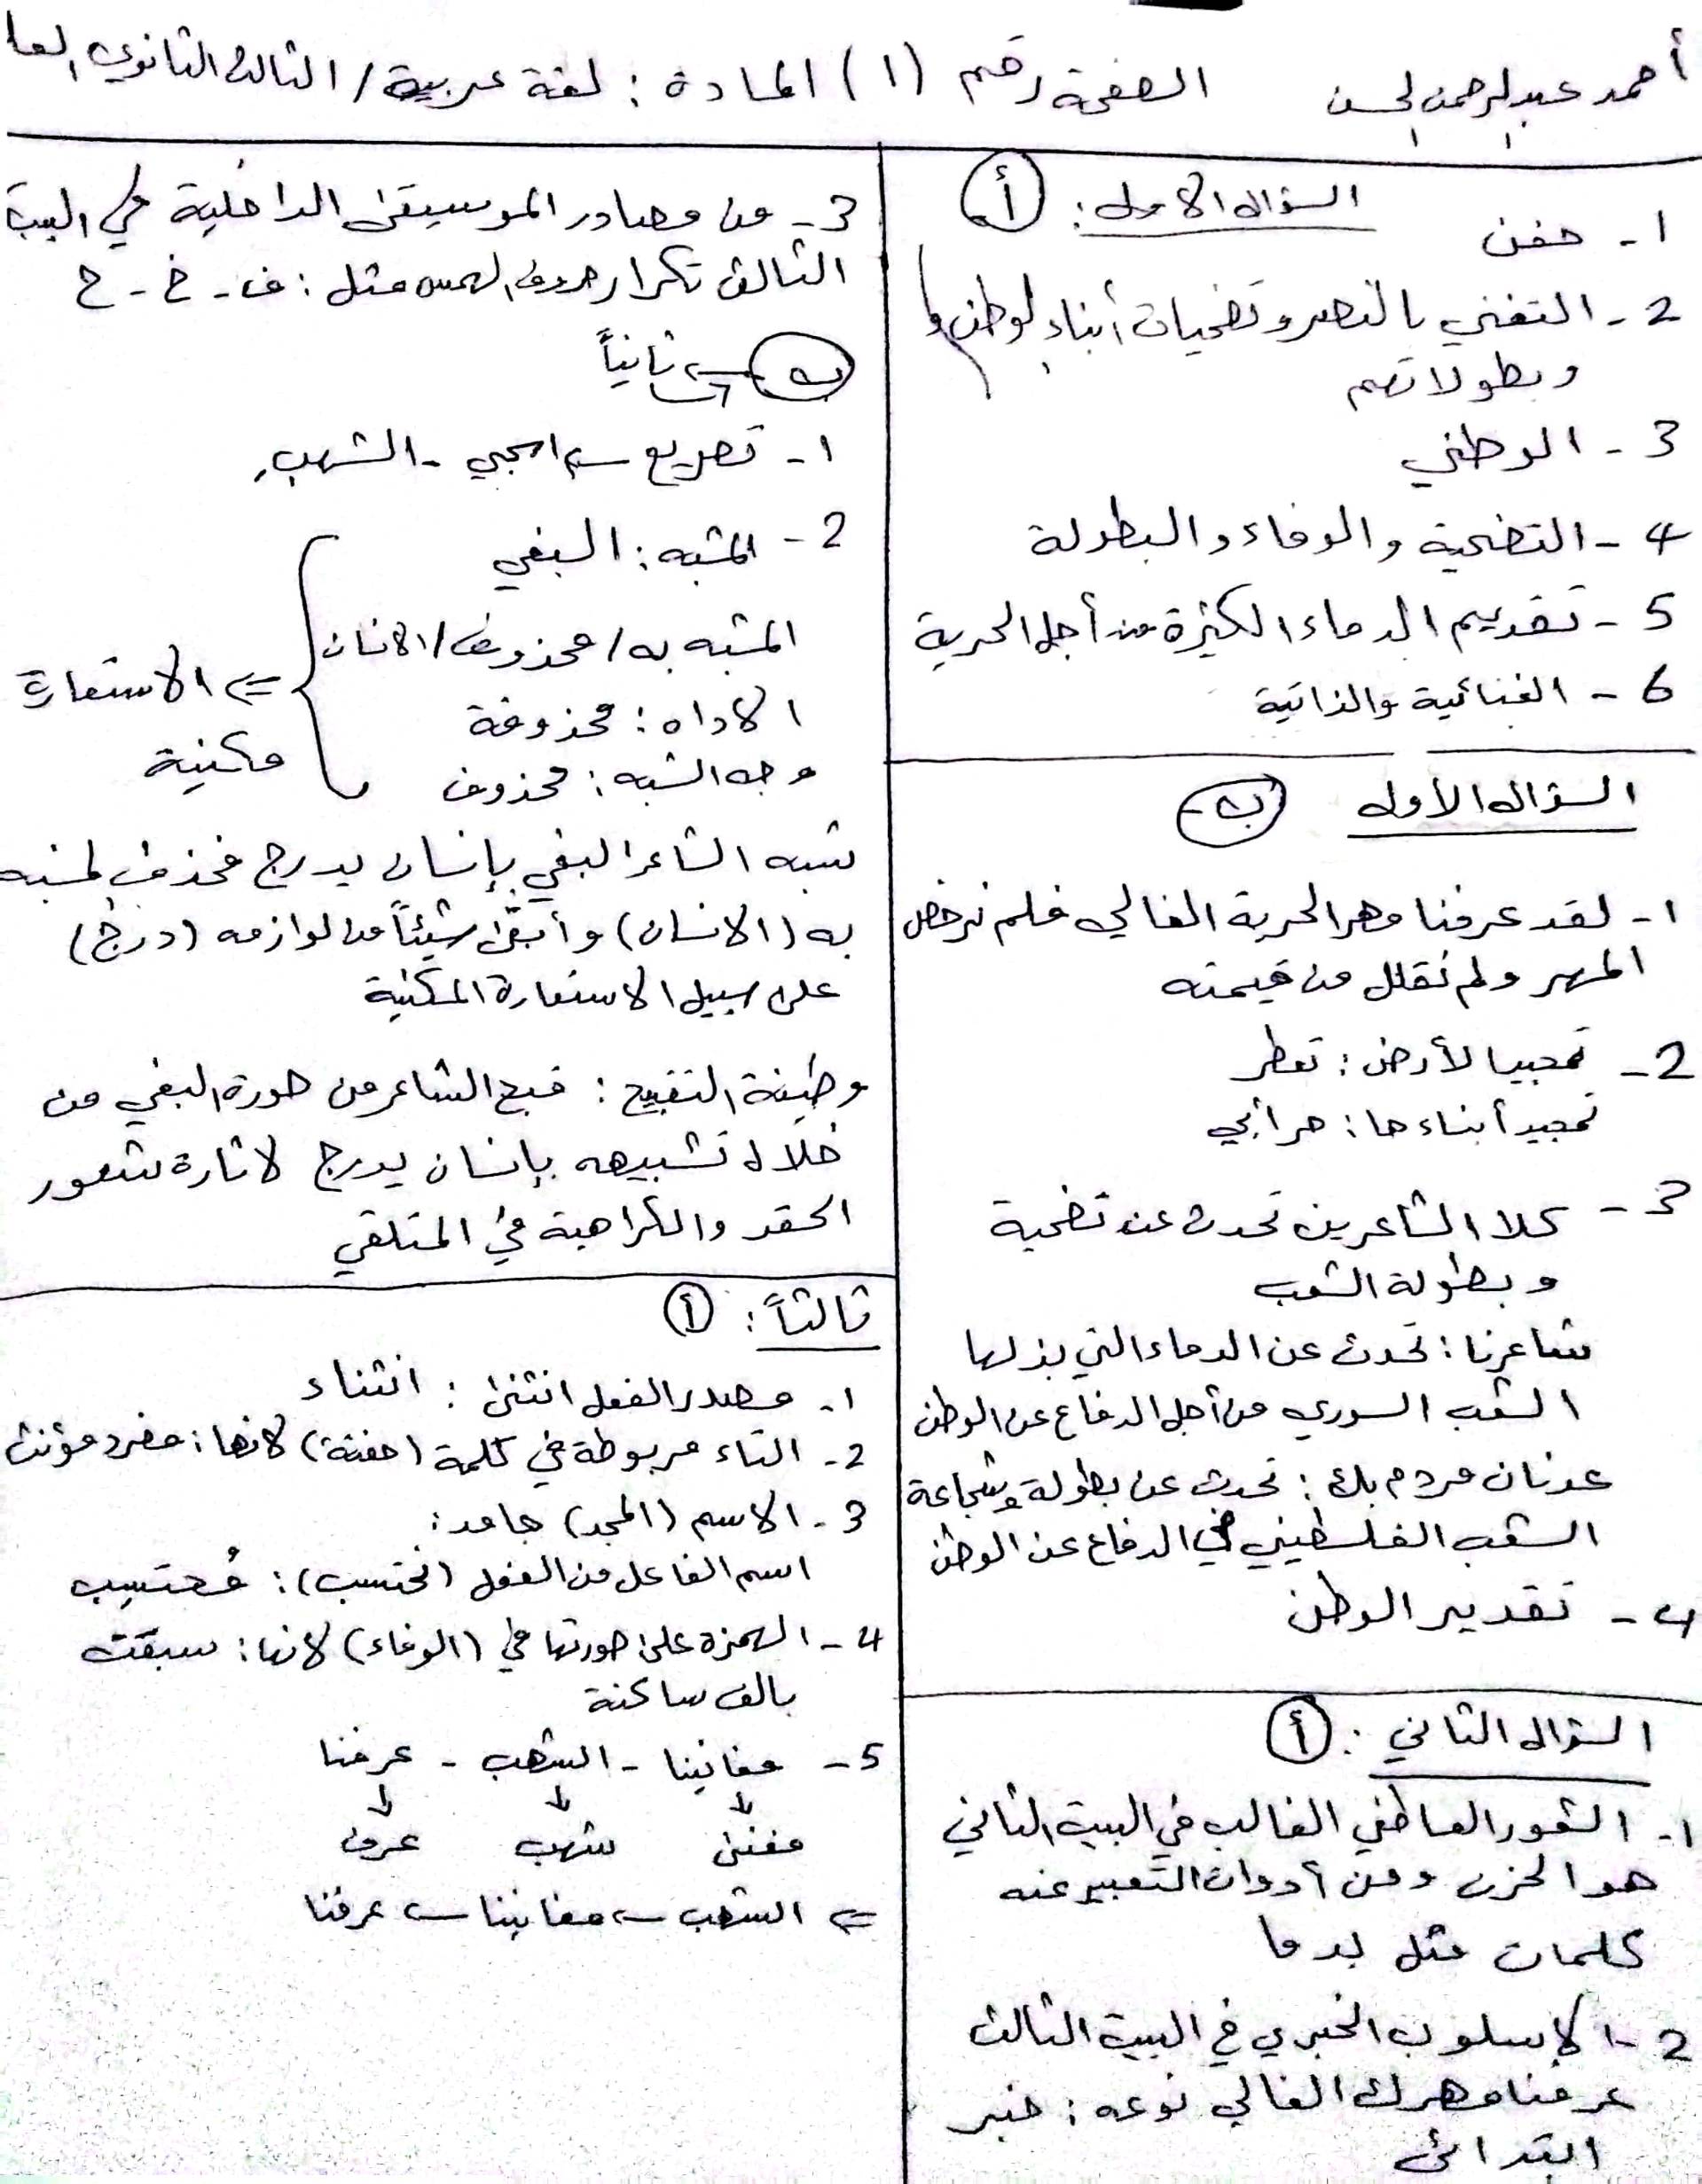 أحمد عبدالرحمن الحسن الصفحة رقم (١) المادة : لغة عربية / الثالث الثانوي العا
السؤال الاول : أ
1- حفن
2- التغني بالنصر وتضحيات أبناء لوطن و
وبطولاتهم
3- الوطني
4- التضحية والوفاء والبطولة
5- تقديم الدماء الكثيرة من أجل الحرية
6- الغنائية والذاتية
السؤال الأول ب
1- لقد عرفنا مهر الحرية الغالي فلم نرخص
المهر ولم نقلل من قيمته
2- تمجيبا لأرض : تعطر
تمجيد أبناءها : حر أبي
3- كلا الشاعرين تحدث عن تضحية
وبطولة الشعب
شاعرنا : تحدث عن الدماء التي بذلها
الشعب السوري من أجل الدفاع عن الوطن
عدنان مردم بك : تحدث عن بطولة وشجاعة
الشعب الفلسطيني في الدفاع عن الوطن
4- تقدير الوطن
السؤال الثاني : أ
1- الشعور العاطفي الغالب في البيت الثاني
هو الحزن ومن أدوات التعبير عنه
كلمات مثل بدما
2- الاسلوب الخبري في البيت الثالث
عرفنا مهرك الغالي نوعه : خبر
ابتدائي
3- من مصادر الموسيقى الداخلية في البيت
الثالث تكرار حروف الهمس مثل : ف - خ - ح
ب ← ثانياً
1- تصريع ← اسحبي - الشهب
2- المشبه : البغي
المشبه به / محذوف / الانسان
الاداه : محذوفة
وجه الشبه : محذوف
⇐ الاستعارة
مكنية
شبه الشاعر البغي بإنسان يدرج فحذف لمشبه
به (الانسان) وأبقى شيئاً من لوازمه (درج)
على سبيل الاستعارة المكنية
وظيفة التقبيح : قبح الشاعر من صورة البغي من
خلال تشبيهه بإنسان يدرج لاثارة شعور
الحقد والكراهية في المتلقي
ثالثاً : أ
1- مصدر الفعل انثنى : انثناء
2- التاء مربوطة في كلمة (حفنة) لانها : مفرد مؤنث
3- الاسم (المجد) جامد :
اسم الفاعل من الفعل (نحتسب) : مُحتسِب
4- الهمزة على صورتها في (الوفاء) لانها : سبقت
بالف ساكنة
5- مغانينا - الشهب - عرفنا
↓ ↓ ↓
مغنى شهب عرف
⇐ الشهب ← مغانينا ← عرفنا